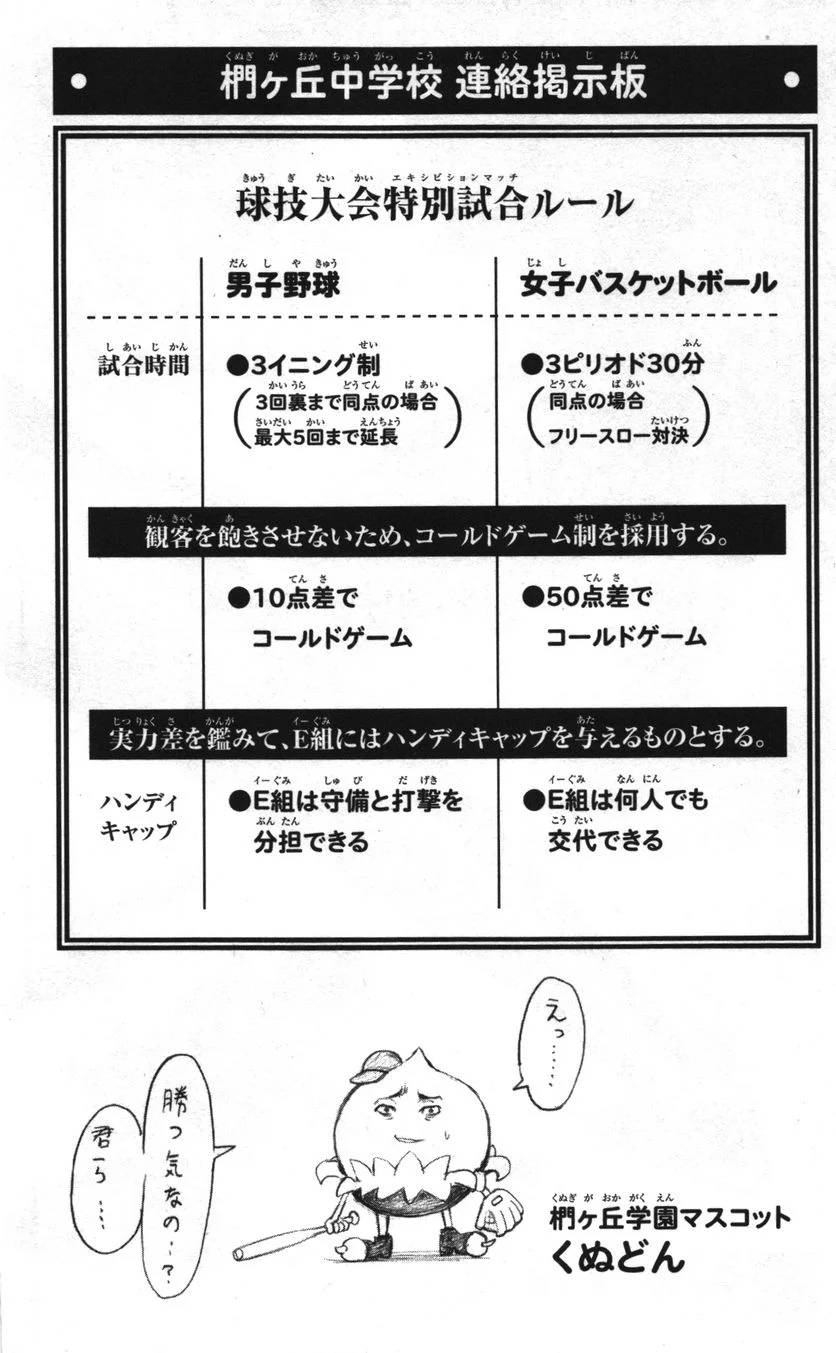 椚ヶ丘中学校 連絡掲示板
球技大会特別試合ルール
男子野球
女子バスケットボール
試合時間
●3イニング制
(3回裏まで同点の場合
最大5回まで延長)
●3ピリオド30分
(同点の場合
フリースロー対決)
観客を飽きさせないため、コールドゲーム制を採用する。
●10点差で
コールドゲーム
●50点差で
コールドゲーム
実力差を鑑みて、E組にはハンディキャップを与えるものとする。
ハンディ
キャップ
●E組は守備と打撃を
分担できる
●E組は何人でも
交代できる
えっ……
勝つ気なの…?
君ら…
椚ヶ丘学園マスコット
くぬどん